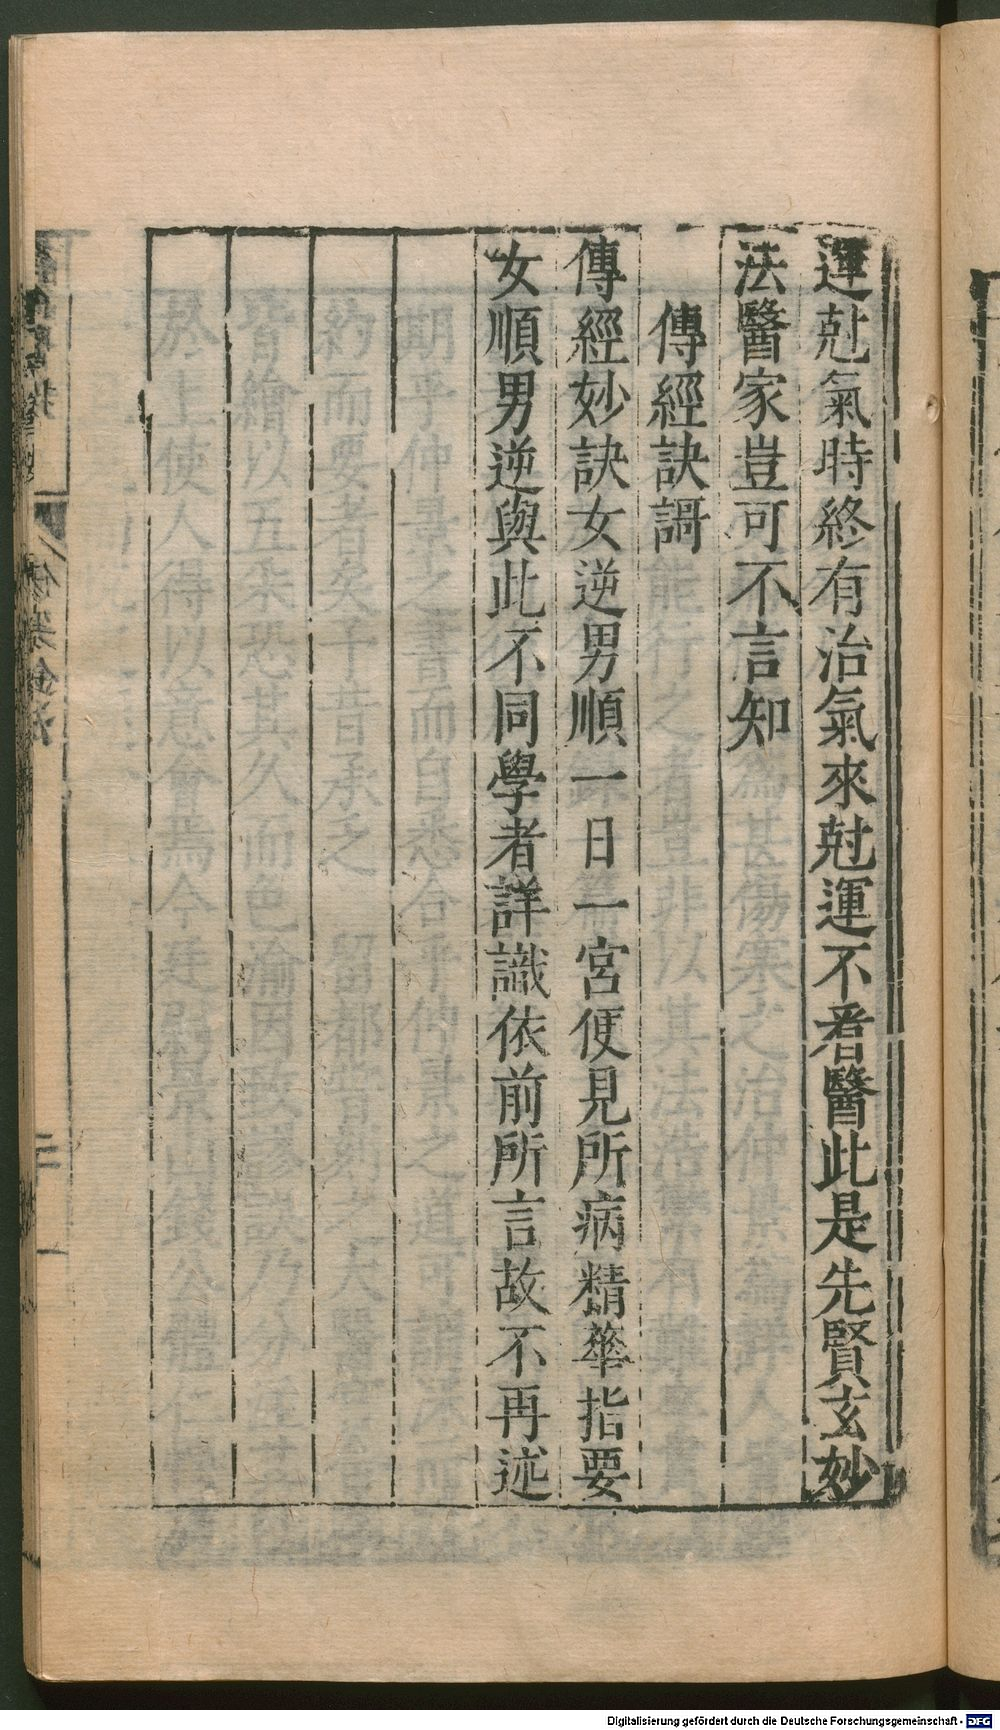 運尅氣時終有治氣來尅運不看醫此是先賢玄妙
法醫家豈可不言知
傳經訣謌
傳經妙訣女逆男順一日一宮便見所病精華指要
女順男逆與此不同學者詳識依前所言故不再述
Digitalisierung gefördert durch die Deutsche Forschungsgemeinschaft - DFG